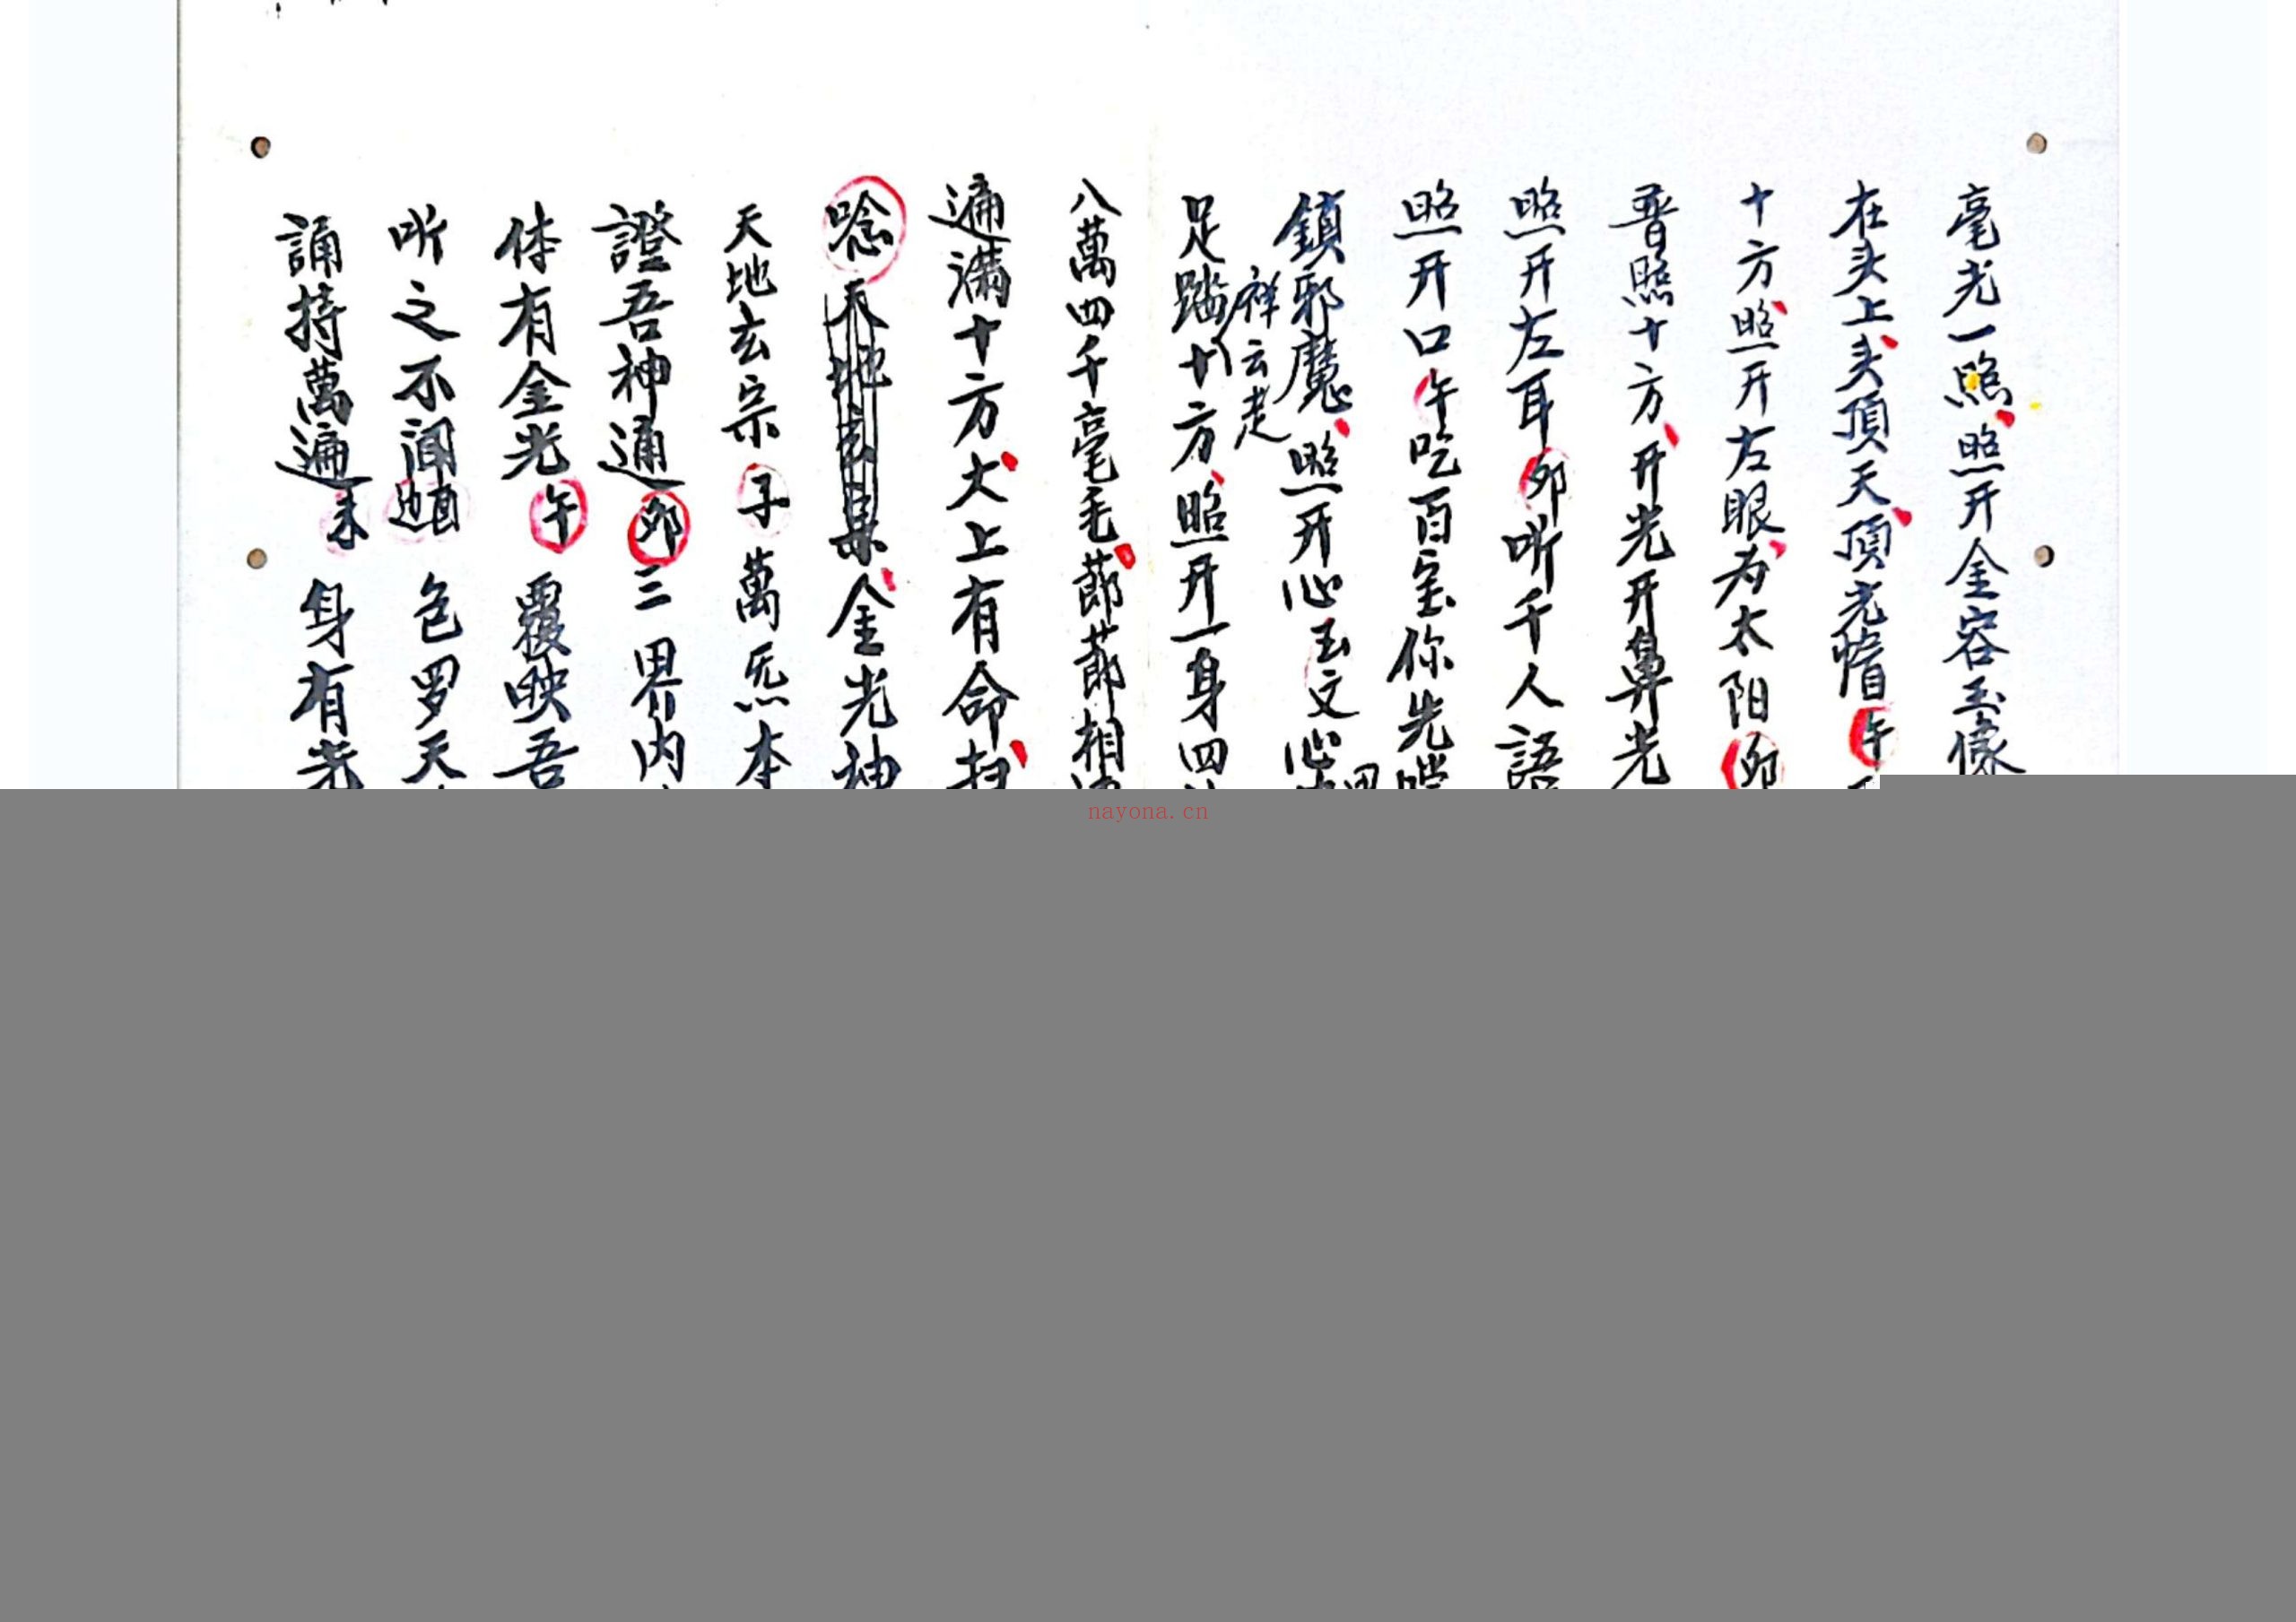 毫光一照照开金容玉像
在头上头頂天頂光
十方照开左眼为太阳卯
普照十方开光开鼻光
照开左耳卯听千人語
照开口午吃百宝你先
鎖邪魔照开心玉文心
祥云走
足踏十方照开一身四
八萬四千毫毛節節相
遍满十方大上有命扫
唸天地玄宗金光神
天地玄宗子萬炁本
證吾神通卯三界内
体有金光午覆映吾
听之不闻 色罗天
誦持萬遍未身有光
nayona.cn